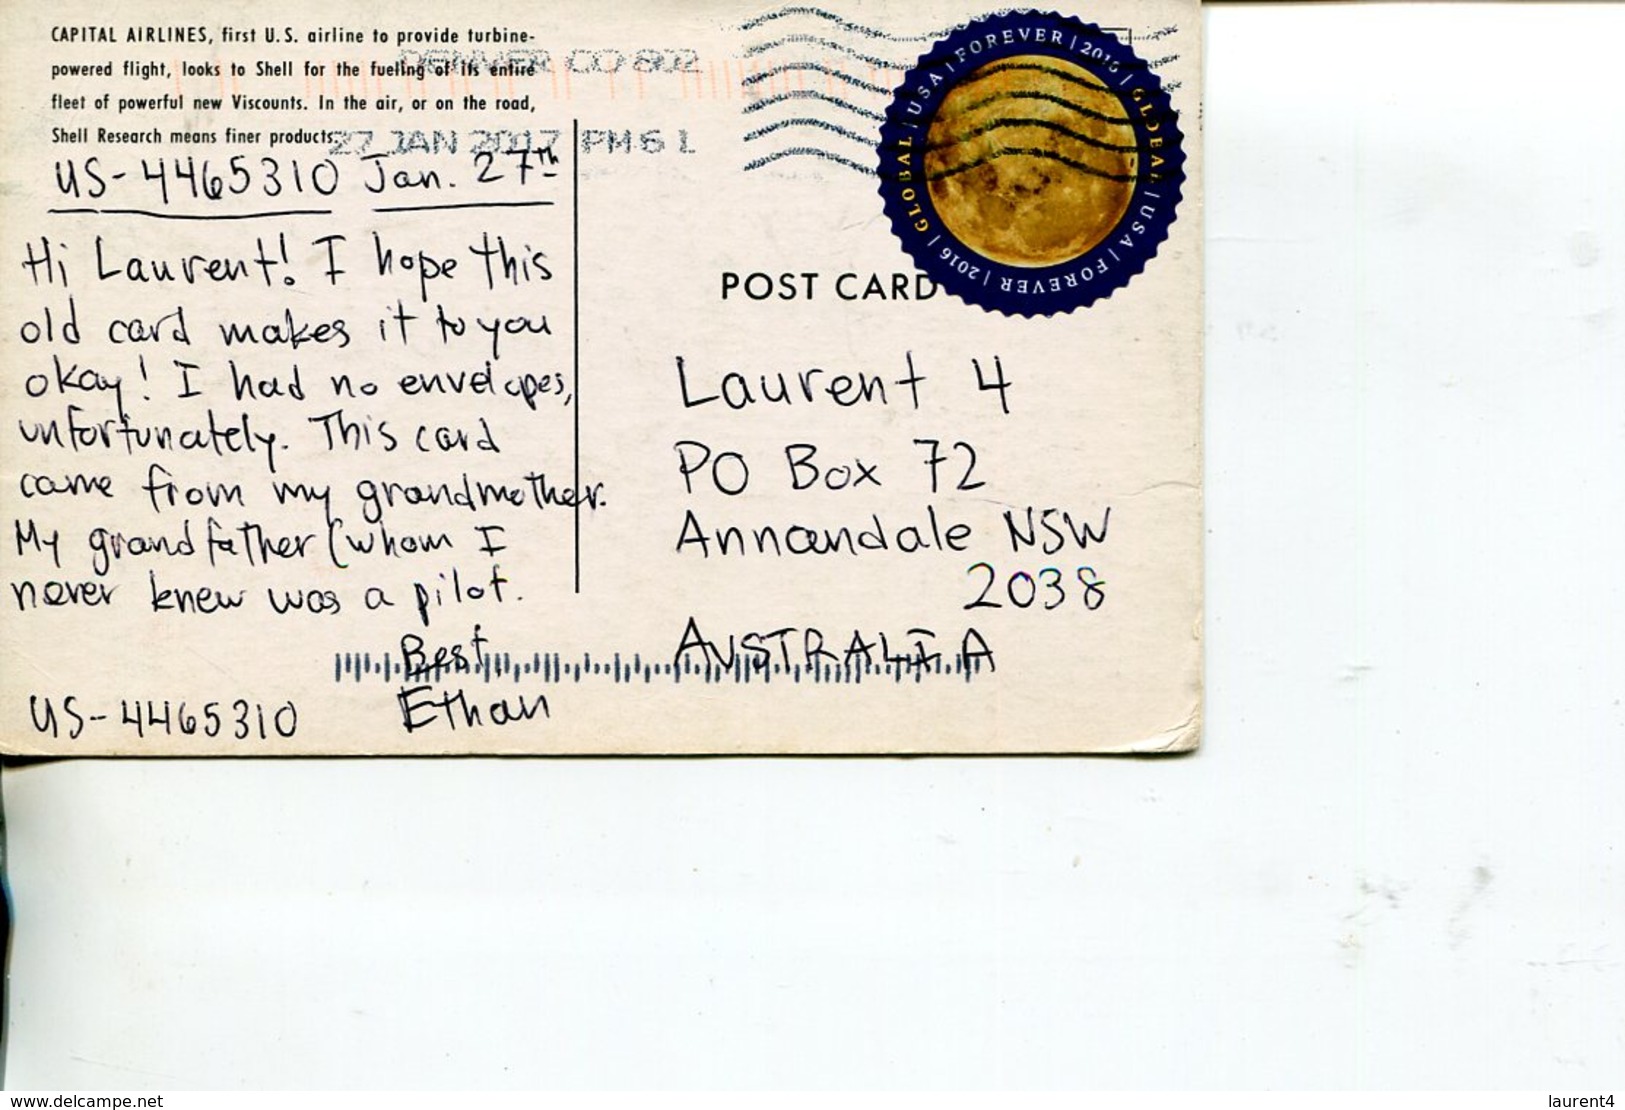 CAPITAL AIRLINES, first U.S. airline to provide turbine-
powered flight, looks to Shell for the fueling of its entire
fleet of powerful new Viscounts. In the air, or on the road,
Shell Research means finer products.
DENVER CO 802
27 JAN 2017 PM 6 L
GLOBAL | USA | FOREVER | 2016 | GLOBAL | USA | FOREVER | 2016 |
US-4465310 Jan. 27th
Hi Laurent! I hope this
old card makes it to you
okay! I had no envelopes,
unfortunately. This card
came from my grandmother.
My grandfather (whom I
never knew was a pilot.
Best,
Ethan
US-4465310
POST CARD
Laurent 4
PO Box 72
Annandale NSW
2038
AUSTRALIA
www.delcampe.net
laurent4